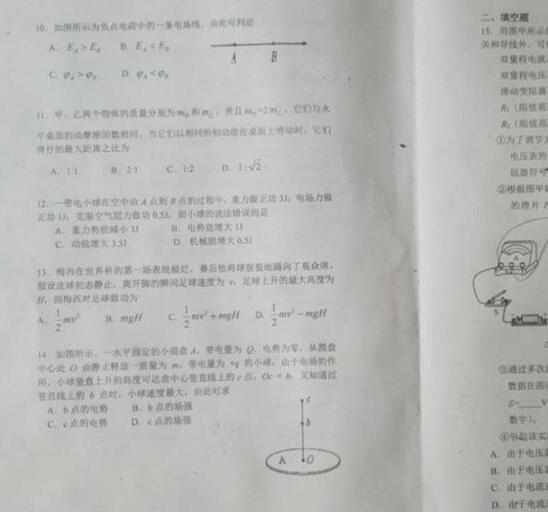 10. 如图所示为负点电荷中的一条电场线，由此可判定
A. E_A＞E_B B. E_A＜E_B
C. φ_A＞φ_B D. φ_A＜φ_B
A B
11. 甲、乙两个物体的质量分别为m甲和m乙，并且m甲=2m乙，它们与水
平桌面的动摩擦因数相同，当它们以相同的初动能在桌面上滑动时，它们
滑行的最大距离之比为
A. 1:1 B. 2:1 C. 1:2 D. 1:√2
12. 一带电小球在空中由A点到B点的过程中，重力做正功3J，电场力做
正功1J，克服空气阻力做功0.5J，则小球的说法错误的是
A. 重力势能减小3J B. 电势能增大1J
C. 动能增大3.5J D. 机械能增大0.5J
13. 梅西在世界杯的第一场表现
假设这球初态静止，离开脚的瞬间足球速度为v，足球上升的最大高度为
H，则梅西对足球做功为
A. 1/2 mv² B. mgH C. 1/2 mv²+mgH D. 1/2 mv²-mgH
14. 如图所示，一水平固定的小圆盘A，带电量为Q，电势为零，从圆盘
中心处O由静止释放一质量为m，带电量为+q的小球，由于电场的作
用，小球竖直上升的高度可达盘中心竖直线上的c点，Oc=h，又知道过
竖直线上的b点时，小球速度最大，由此可求
A. b点的电势 B. b点的场强
C. c点的电势 D. c点的场强
c
b
A O
二、填空题
15. 用图甲所示
关和导线外，可
双量程电流
双量程电压
滑动变阻器
①为了调节
电压表的
②根据图甲
的滑片
A
S
③通过多次
数据在图
V
数字）。
A. 由于电压
B. 由于电压
C. 由于电流
D. 由于电流